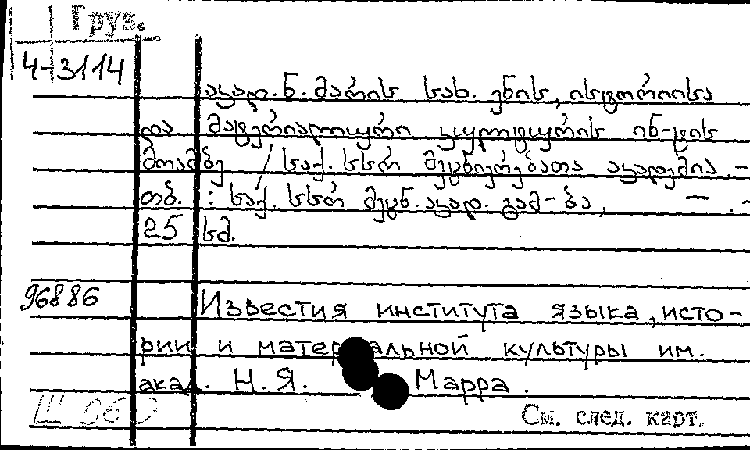 Груз.
4-3114
აკად. ნ. მარის სახ. ენის, ისტორიისა
და მატერიალური კულტურის ინ-ტის
მოამბე / საქ. სსრ მეცნიერებათა აკადემია. -
თბ. : საქ. სსრ მეცნ. აკად. გამ-ბა, — . -
25 სმ.
96886
Известия института языка, исто-
рии и материальной культуры им.
акад. Н.Я. Марра.
См. след. карт.